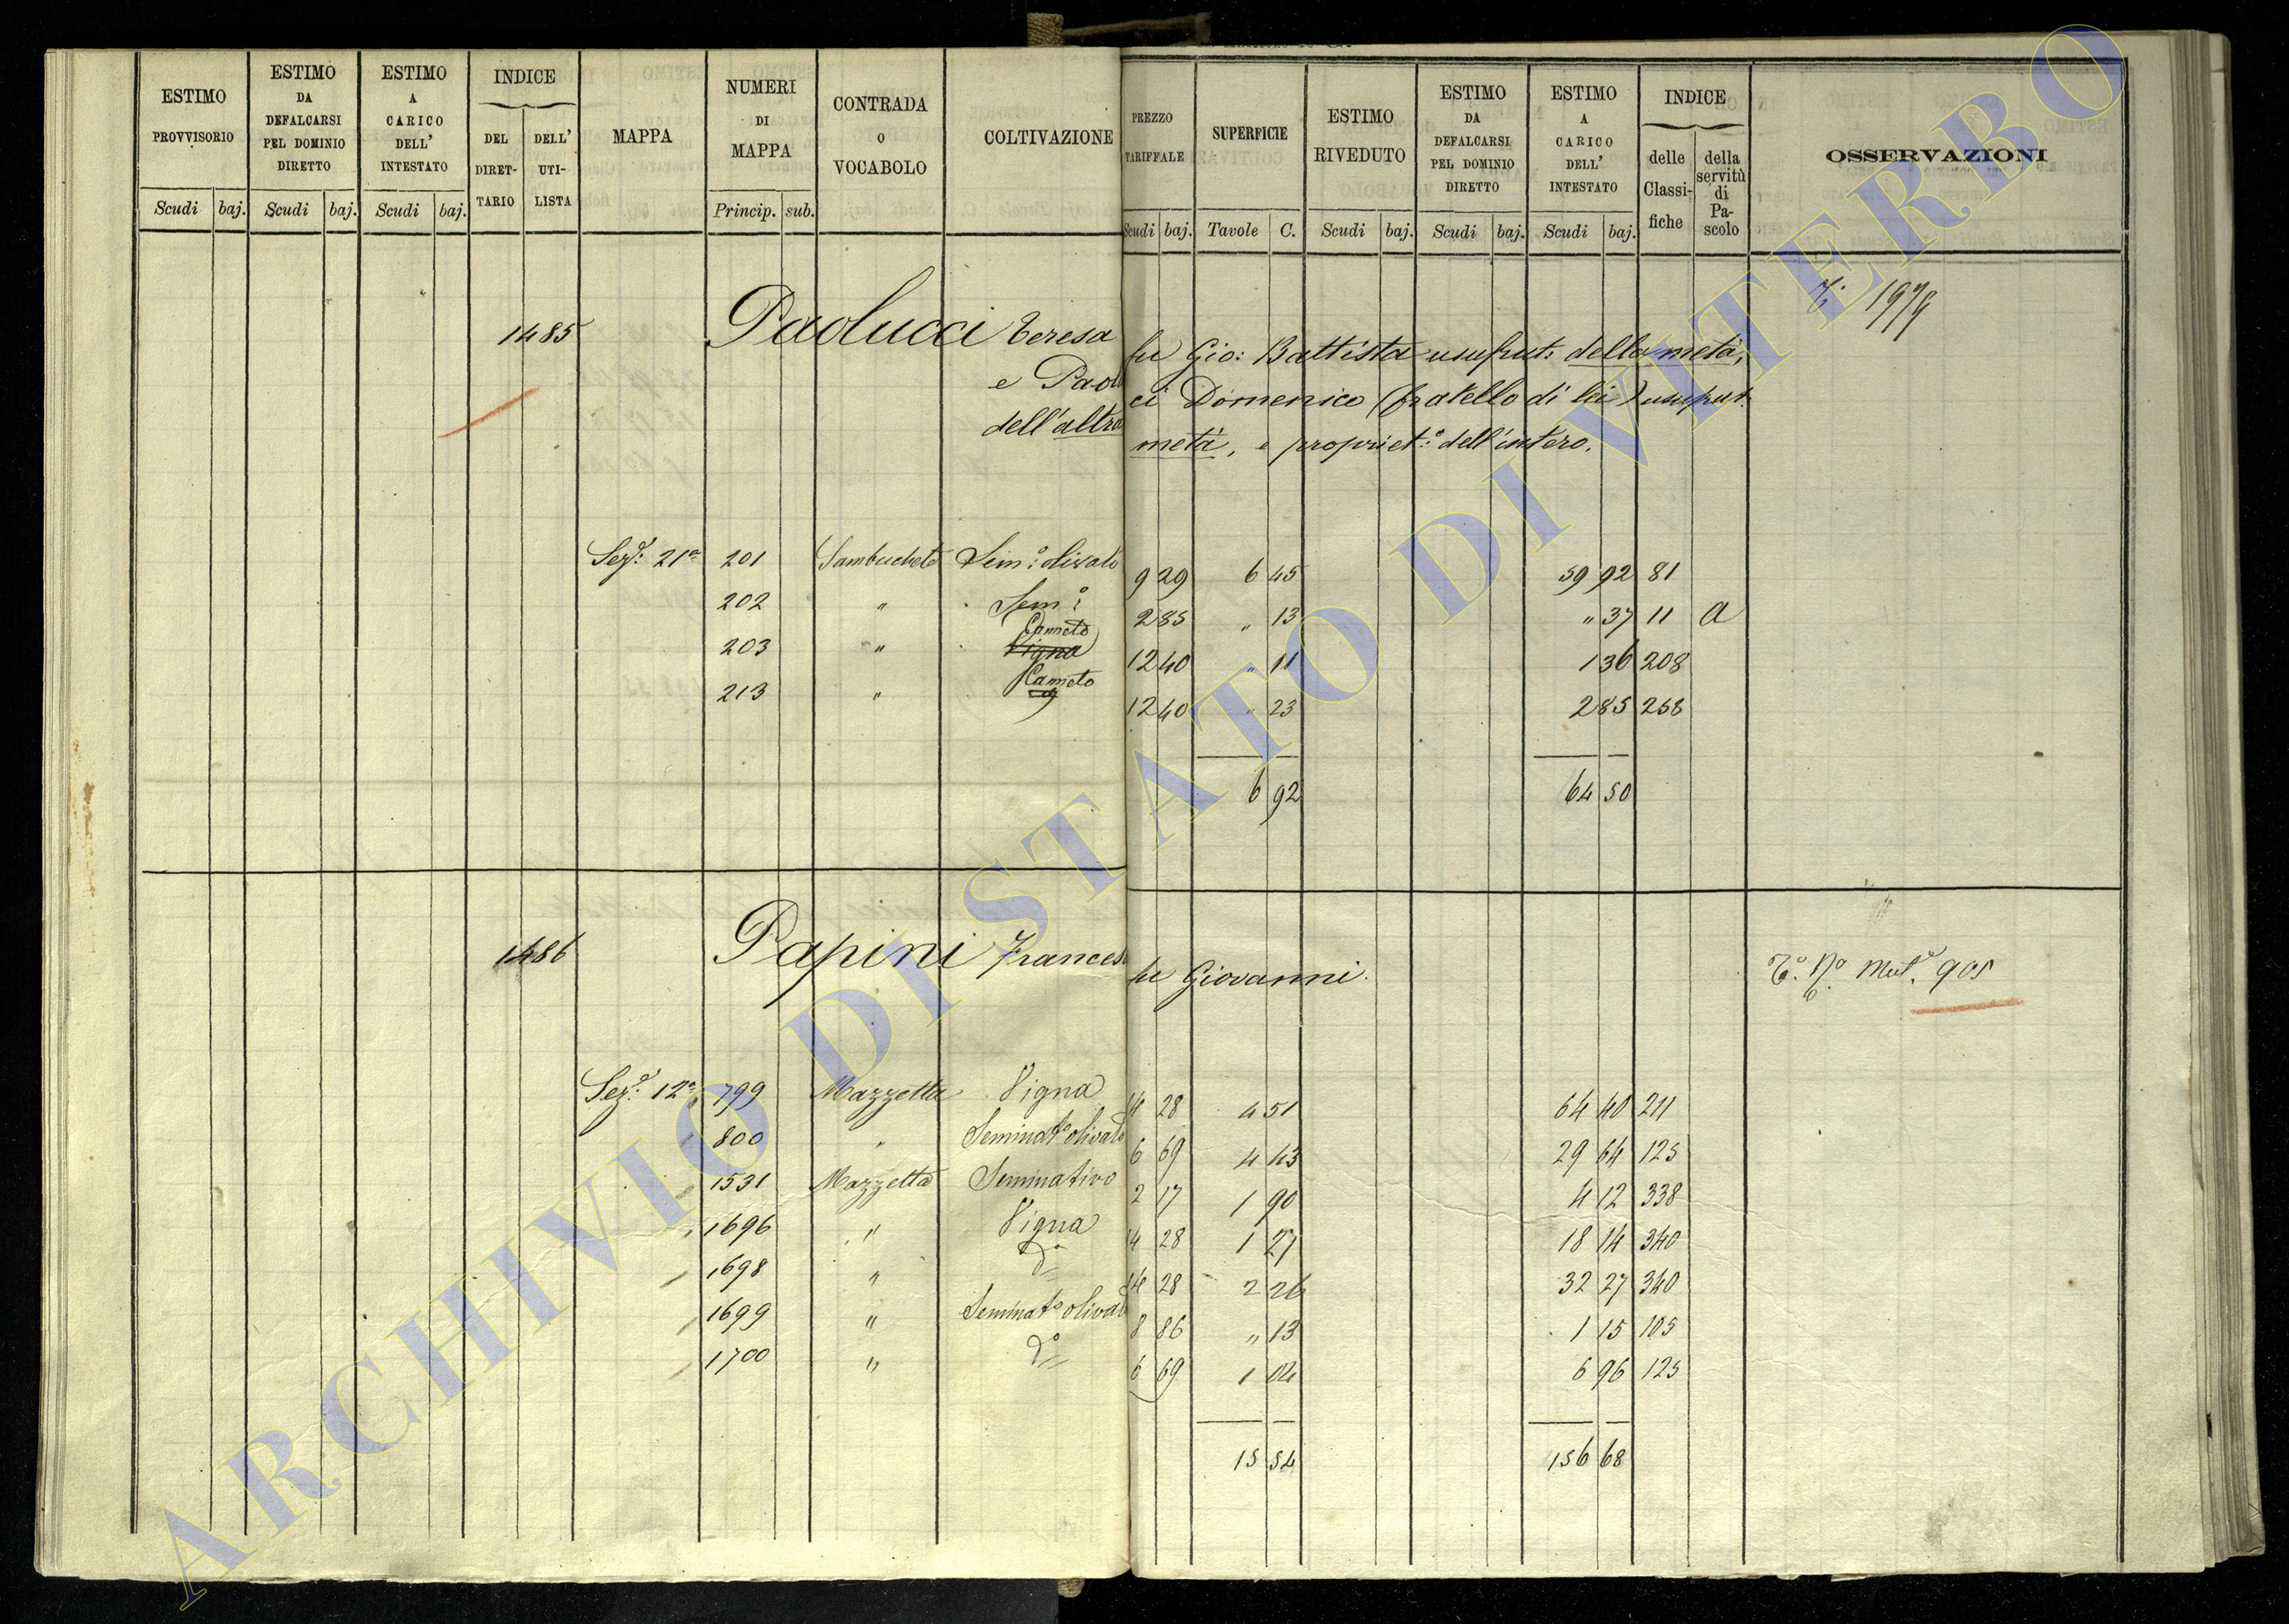 ESTIMO PROVVISORIO Scudi baj.
ESTIMO DA DEFALCARSI PEL DOMINIO DIRETTO Scudi baj.
ESTIMO A CARICO DELL' INTESTATO Scudi baj.
INDICE DEL DIRETTARIO DELL' UTILISTA
MAPPA
NUMERI DI MAPPA Princip. sub.
CONTRADA O VOCABOLO
COLTIVAZIONE
PREZZO TARIFFALE Scudi baj.
SUPERFICIE Tavole C.
ESTIMO RIVEDUTO Scudi baj.
ESTIMO DA DEFALCARSI PEL DOMINIO DIRETTO Scudi baj.
ESTIMO A CARICO DELL' INTESTATO Scudi baj.
INDICE delle Classifiche della servitù di Pascolo
OSSERVAZIONI
1485 Paolucci Teresa fu Gio: Battista usufrut: della metà,
e Paolucci Domenico (fratello di lei) usufrut.
dell'altra metà, e propriet:º dell'intero.
Sezº: 21ª 201 Sambucheto Sem:º olivato 9 29 6 45 59 92 81
202 " Sem:º 2 85 " 13 " 37 11 a
203 " Canneto Vigna 12 40 " 11 1 36 208
213 " Canneto 12 40 " 23 2 85 258
6 92 64 50
1486 Papini Frances fu Giovanni. Tº. Nº. Mutª. 905
Sezº: 12ª 799 Mazzetta Vigna 14 28 4 51 64 40 211
800 " Seminatº olivato 6 69 4 43 29 64 125
1531 Mazzetta Seminativo 2 17 1 90 4 12 338
1696 " Vigna 14 28 1 27 18 14 340
1698 " dº 14 28 2 26 32 27 340
1699 " Seminatº olivato 8 86 " 13 1 15 105
1700 " dº 6 69 1 04 6 96 125
15 54 156 68
ARCHIVIO DI STATO DI VITERBO